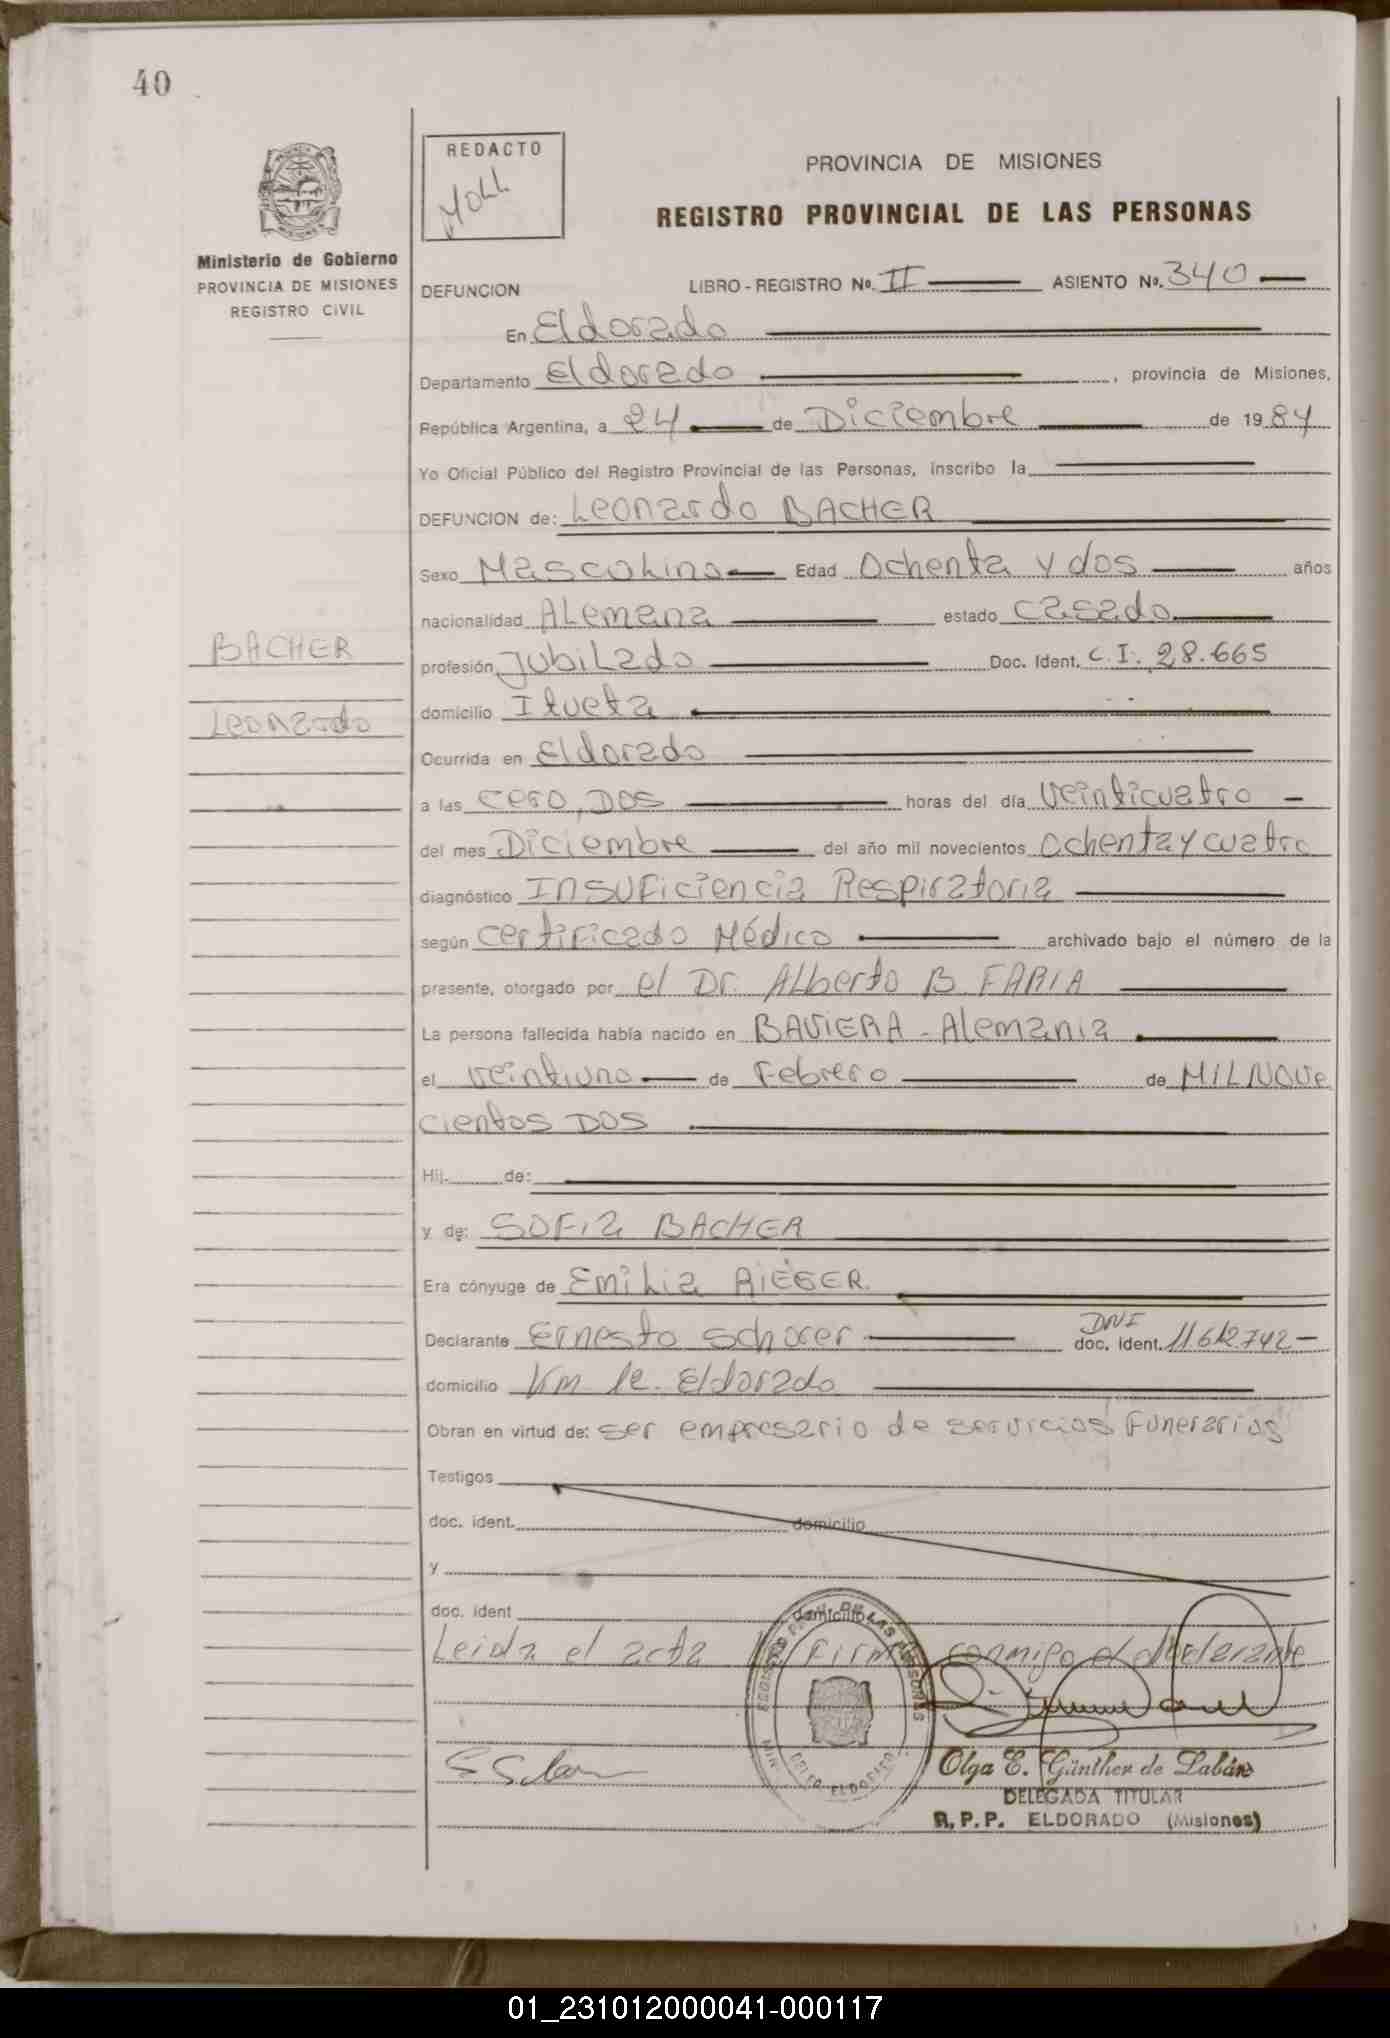 40
REDACTO
MOLL
Ministerio de Gobierno
PROVINCIA DE MISIONES
REGISTRO CIVIL
BACHER
Leonardo
PROVINCIA DE MISIONES
REGISTRO PROVINCIAL DE LAS PERSONAS
DEFUNCION LIBRO - REGISTRO No. II ASIENTO No. 340
En Eldorado
Departamento Eldorado, provincia de Misiones,
República Argentina, a 24 de Diciembre de 1984
Yo Oficial Público del Registro Provincial de las Personas, inscribo la
DEFUNCION de: Leonardo BACHER
Sexo Mascolino Edad Ochenta y dos años
nacionalidad Alemana estado casado
profesión Jubilado Doc. Ident. C.I. 28.665
domicilio Itueta
Ocurrida en Eldorado
a las cero, DOS horas del día veinticuatro
del mes Diciembre del año mil novecientos ochenta y cuatro
diagnóstico INSUFiciencia Respiratoria
según certificado Médico archivado bajo el número de la
presente, otorgado por el Dr. Alberto B FARIA
La persona fallecida había nacido en BAVIERA - Alemania
el veintiuno de Febrero de MIL NOVE
cientos DOS
Hij. de:
y de: SOFia BACHER
Era cónyuge de Emilia RIEGER.
Declarante Ernesto Schorer DNI doc. ident. 11.612.742
domicilio Km 10. Eldorado
Obran en virtud de: ser empresario de servicios Funerarios
Testigos
doc. ident. domicilio
y
doc. ident domicilio
Leida el acta Firma conmigo el declarante
Olga E. Günther de Labán
DELEGADA TITULAR
R.P.P. ELDORADO (Misiones)
01_231012000041-000117